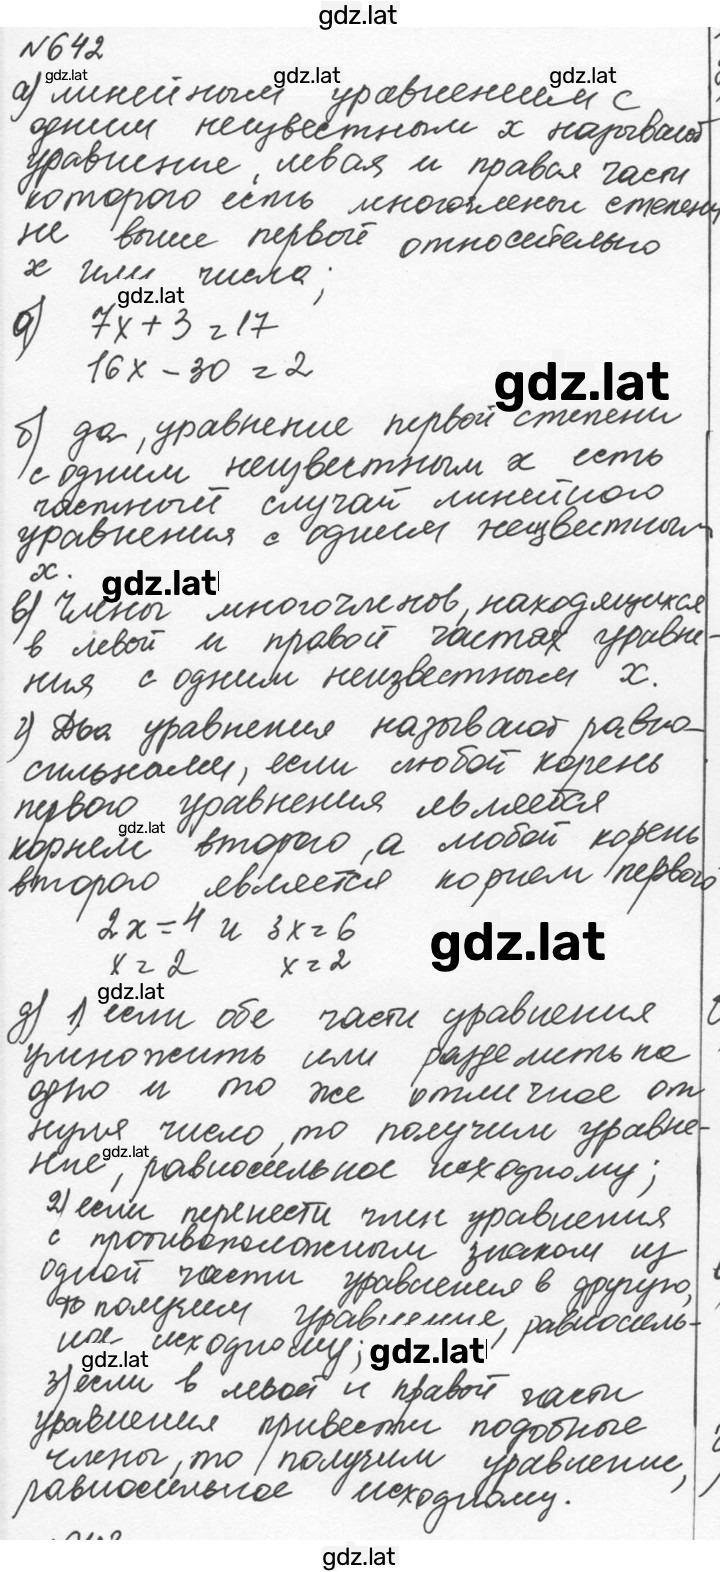 gdz.lat
№642
gdz.lat
gdz.lat
gdz.lat
а) линейным уравнением с
одним неизвестным x называют
уравнение, левая и правая части
которого есть многочлены степени
не выше первой относительно
x или числа;
gdz.lat
а) 7x + 3 = 17
16x - 30 = 2
gdz.lat
б) да, уравнение первой степени
с одним неизвестным x есть
частный случай линейного
уравнения с одним неизвестным
x.
gdz.lat
в) Члены многочленов, находящихся
в левой и правой частях уравне-
ния с одним неизвестным x.
г) Два уравнения называют равно-
сильными, если любой корень
первого уравнения является
gdz.lat
корнем второго, а любой корень
второго является корнем первого
2x = 4 и 3x = 6
x = 2 x = 2
gdz.lat
gdz.lat
д) 1) если обе части уравнения
умножить или разделить на
одно и то же отличное от
нуля число, то получим уравне-
gdz.lat
ние, равносильное исходному;
2) если перенести член уравнения
с противоположным знаком из
одной части уравнения в другую,
то получим уравнение, равносиль-
ное исходному;
gdz.lat
gdz.lat
3) если в левой и правой части
уравнения привести подобные
члены, то получим уравнение,
равносильное исходному.
gdz.lat